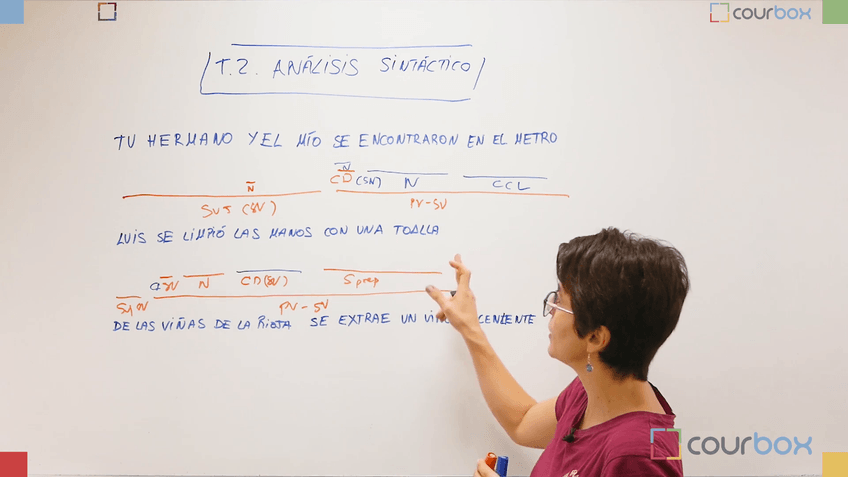 courbox
T.2. ANÁLISIS SINTÁCTICO
TU HERMANO Y EL MÍO SE ENCONTRARON EN EL METRO
N
N CD (SN) N CCL
SUJ (SN) PV-SV
LUIS SE LIMPIÓ LAS MANOS CON UNA TOALLA
N CD (SN) S prep
PV-SV
DE LAS VIÑAS DE LA RIOJA SE EXTRAE UN
courbox